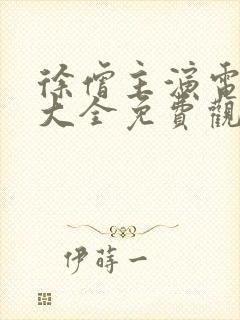 徐僧主演電
大全免費觀
伊蒔一